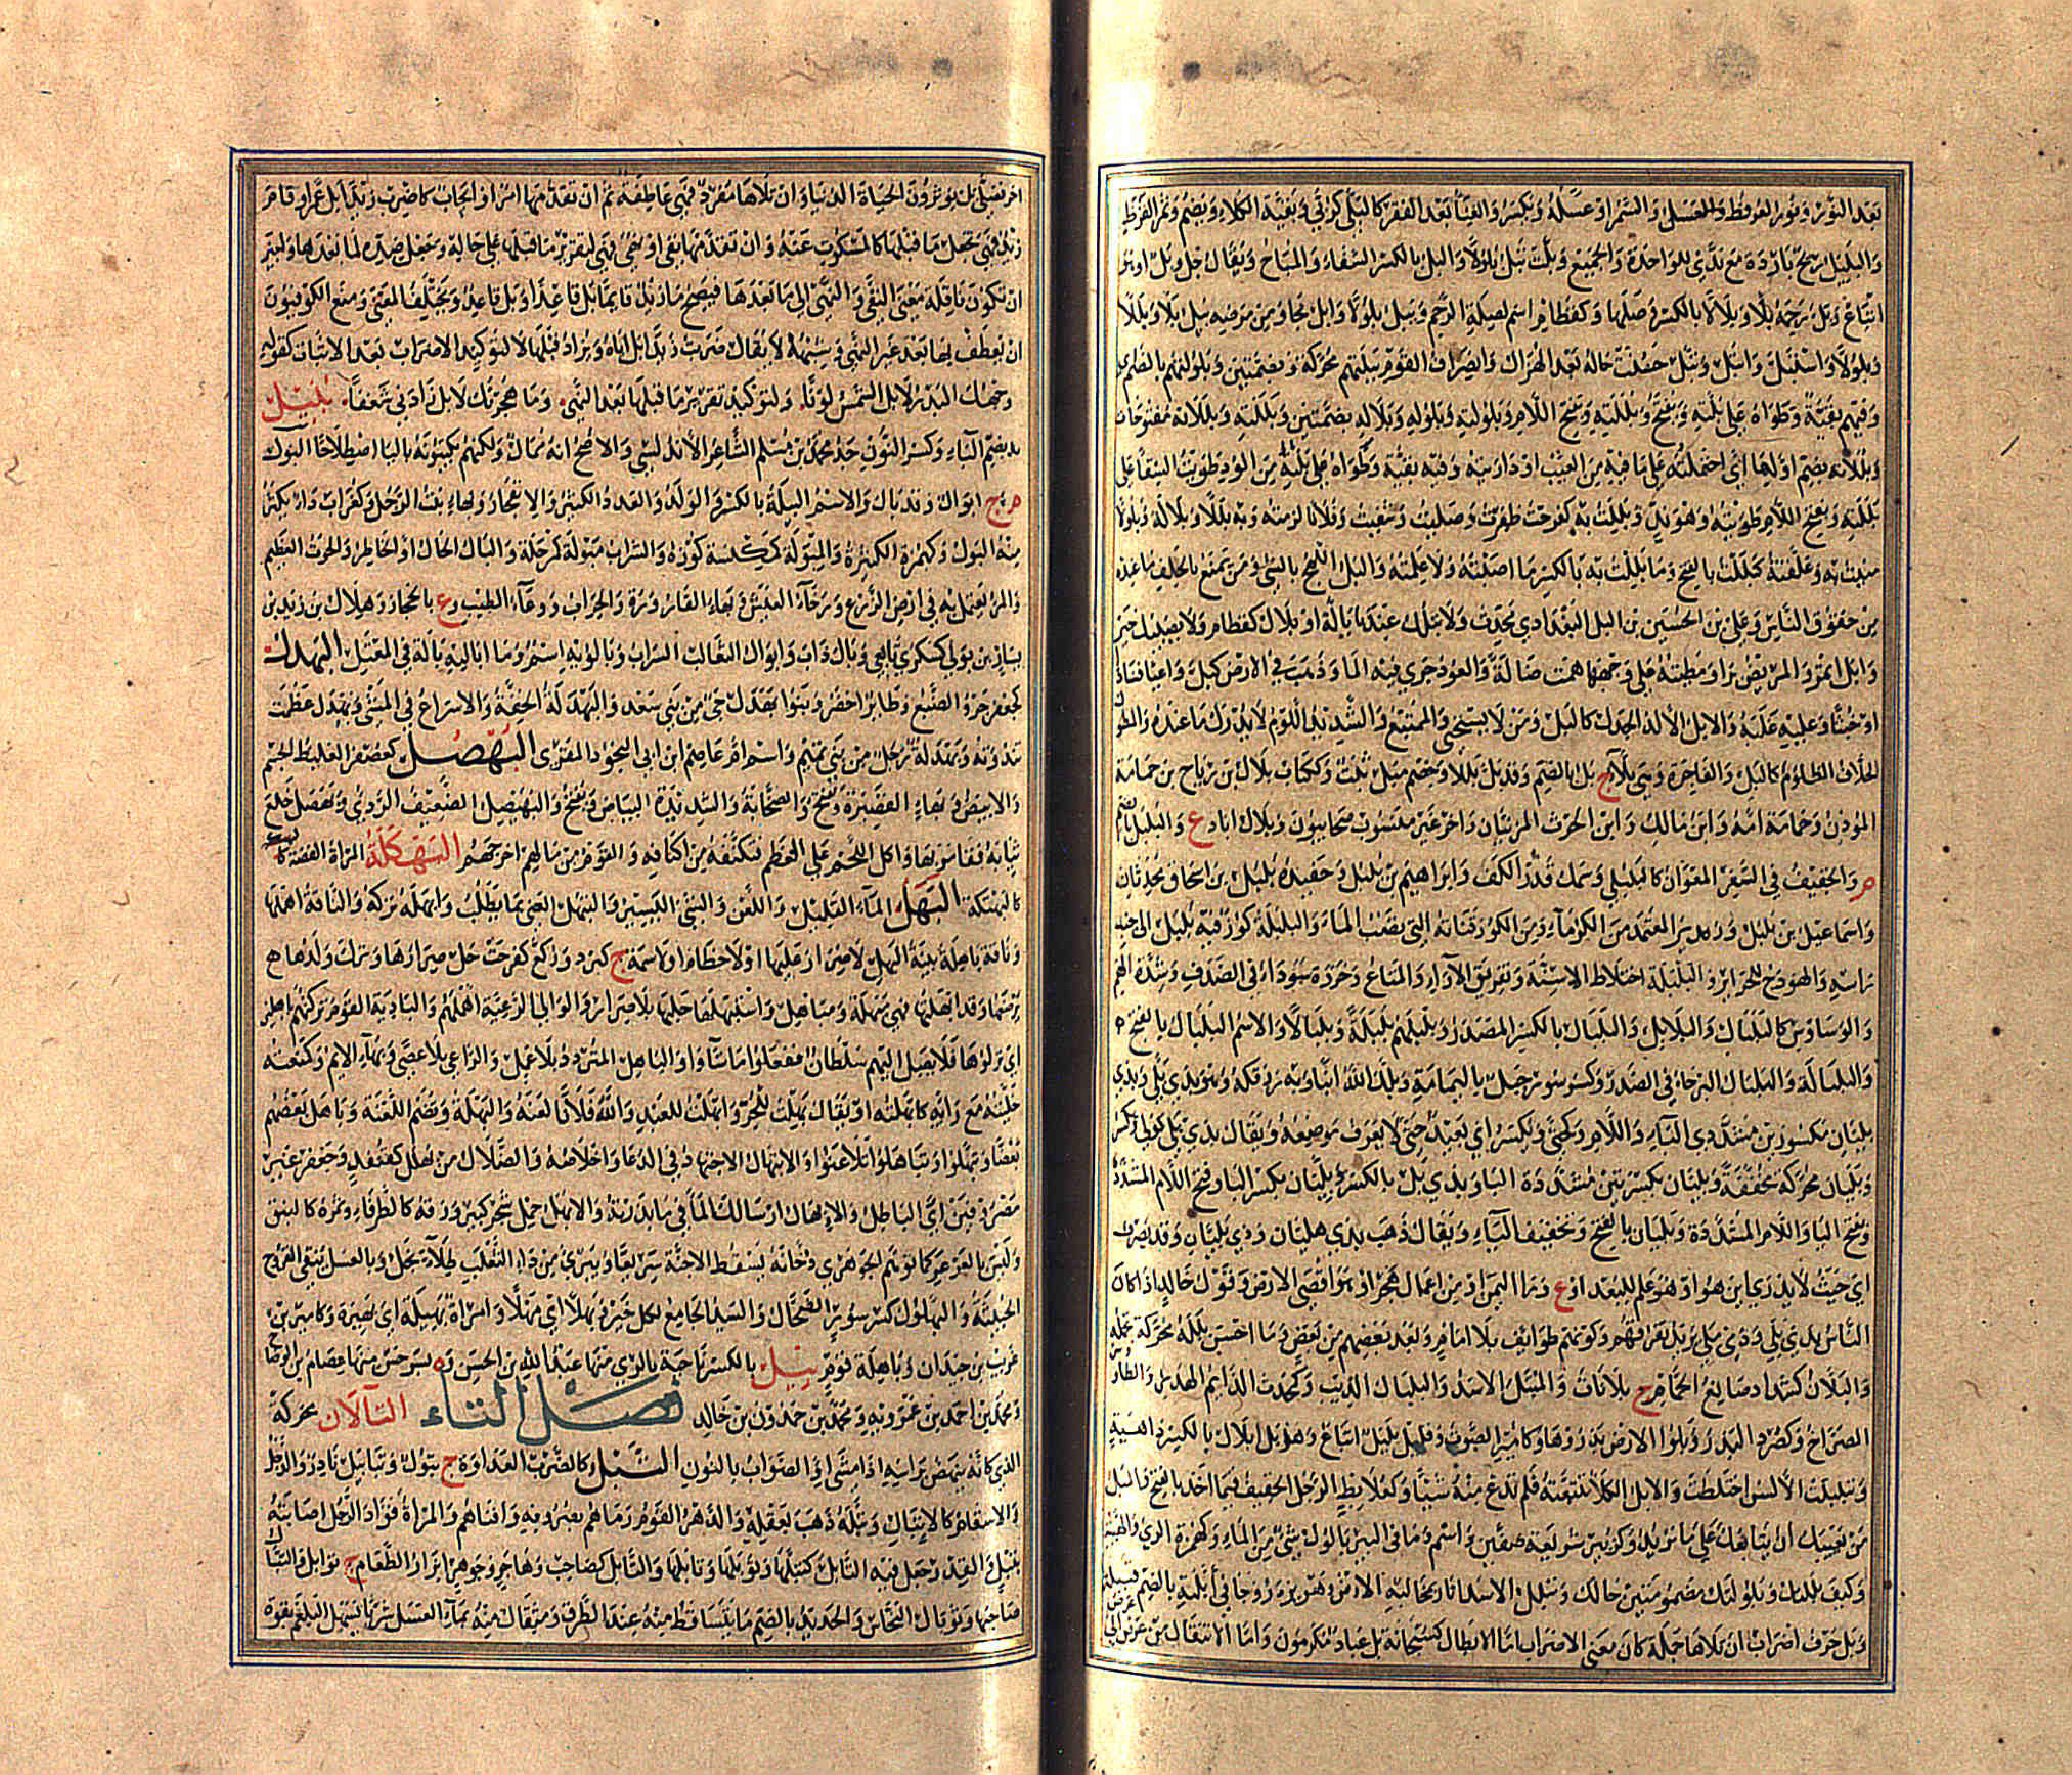 بعد النور ونور العرفط والعسل والسمر او عسله ويكسر والغنا بعد الفقر كالبلى كربى وبقية الكلاء ويضم وثمر القرظ
والبليل ريح باردة مع ندى للواحدة والجميع وبلت تبل بلولا والبل بالكسر الشفاء والمباح ويقال حل وبل او هو
اتباع وبل رحمه بلا وبلالا بالكسر وصلها وكقطام اسم لصلة الرحم وبل بلولا وابل نجا ومن مرضه يبل بلا وبللا
وبلولا واستبل وابتل وتبلل حسنت حاله بعد الهزال وانصرف القوم ببللتهم محركة وبضمتين وبلولتهم بالضم اى
وفيهم بقية وطواه على بلته ويفتح وبللته وتفتح اللام وبلولته وبلوله وبلاله بضمتين وبللته وبللاته مفتوحات
وبللاته بضم اولها اى احتمله على ما فيه من العيب او داريته وفيه بقية وطواه على بلته من الود وطويت السقا على
بللته وبفتح اللام طويته وهو ندى وبللت به كفرحت ظفرت وصليت وشقيت وفلانا لزمته وبه بللا وبلالة وبلولا
منيت به وعلقته كبللت بالفتح وما بللت به بالكسر ما اصبته ولا علمته والبل اللهج بالشئ ومن يمنع بالحلف ما عنده
من حقوق الناس وعلى بن الحسين بن البل البغدادي محدث ولا تبلك عندنا بالة او بلال كقطام ولا يصيبك خير
وابل اثمر والمريض برا ومطيته على وجهها همت ضالة والعود جرى فيه الما وذهب في الارض كبل واعيا فسادا
او خبثا وعليه غلبه والابل الالد الجدل كالبل ومن لا يستحي والممتنع والشديد اللوم لا يدرك ما عنده والمطول
الحلاف الظلوم كالبل والفاجرة وهى بلاء ج بل بالضم وقد بل بللا وخصم مبل ثبت وككتاب بلال بن رباح بن حمامة
المؤذن وحمامة امه وابن مالك وابن الحرث المزنيان واخر غير منسوب صحابيون وبلال اباد ع والبلبل بالضم
م والخفيف في السفر المعوان كالبلبلى وسمك قدر الكف وابراهيم بن بلبل وحفيده بلبل بن اسحاق محدثان
واسماعيل بن بلبل وزير المعتمد من الكرماء ومن الكوز قناته التى تصب الماء والبلبلة كوز فيه بلبل الى جنب
راسه والهودج للحرائر والبلبلة اختلاط الالسنة وتفريق الآراء والمتاع وخرزة سوداء في الصدف وشدة الهم
والوساوس كالبلبال والبلابل والبلبال بالكسر المصدر وبلبلهم بلبلة وبلبالا والاسم البلبال بالفتح
والبلبالة والبلبال البرحاء في الصدر وكسرسور رجل باليمامة وبلك الله ابنا وبه رزقكه وهو بذى بلى وبذى
بليان مكسورين مشددى الياء واللام وكحتى ويكسر اي بعيد حتى لا يعرف موضعه ويقال بذى بلى كولى ويكسر
وبليان محركة مخففة وبليان بكسرتين مشددة اليا وبذى بل بالكسر وبليان بكسر البا وفتح اللام المشددة
وفتح البا واللام المشددة وبليان بالفتح وتخفيف الياء ويقال ذهب بذى هليان وذى بليان وقد يصرف
اي حيث لا يدرى اين هو او هو علم للبعد او ع ورا اليمن او من اعمال هجر او هو اقصى الارض وقول خالد اذا كان
الناس بذى بلى وذى بلى يريد تفرقهم وكونهم طوائف بلا امام وبعد بعضهم من بعض وما احسن بلله محركة تجمله
والبلان كشداد صالغ الحمام ج بلانات والمبلل الاسد والبلبال الذيب وكمحدث الدائم الهدير والطاوس
الصراخ وكصرد البذر وبلوا الارض بذروها وكامير الصوت وقليل بليل اتباع وهو بل ابلال بالكسر داهية
وتبلبلت الالسن اختلطت والابل الكلأ تتبعته فلم تدع منه شيئا وكعلابط الرجل الخفيف فيما اخذ بالفتح والبل
من يعييك ان يتابعك على ما تريد وكزبير شريعة صفين واسم وما في البير بالول بشئ من الماء وكهمزة الزى والهيئة
وكيف بللتك وبلولتك مضمومتين حالك وتبلل الاسد اثار بمخالبه الارض وهو يزمجر
وبل حرف اضراب ان تلاها جملة كان معنى الاضراب اما الابطال كسبحانه بل عباد مكرمون واما الانتقال من غرض الى
اخر فصلى بل تؤثرون الحياة الدنيا وان تلاها مفرد فهى عاطفة ثم ان تقدمها امر او ايجاب كاضرب زيدا بل عمرا وقام
زيد فهى تجعل ما قبلها كالمسكوت عنه وان تقدمها نفى او نهى فهى لتقرير ما قبلها على حاله وجعل ضده لما بعدها واجيز
ان تكون ناقلة معنى النفى والنهى الى ما بعدها فيصح ما زيد قايما بل قاعدا وبل قاعد ويختلف المعنى ومنع الكوفيون
ان يعطف بها بعد غير النهى وشبهه لا يقال ضربت زيدا بل اباه ويزاد قبلها لا لتوكيد الاضراب بعد الاثبات كقوله
وجهك البدر لا بل الشمس لو ولتوكيد تقرير ما قبلها بعد النهى وما هجرتك لا بل زادني شغفا بنيل
بضم الباء وكسر النون جد محمد بن مسلم الشاعر الاندلسى والاصح انه ممالة ولكنهم يكتبونه بالبا اصطلاحا البول
م ج ابوال وقد بال والاسم البيلة بالكسر والولد والعدد الكثير والانفجار وبهاء بنت الرجل وكغراب داء يكثر
منه البول وكهمزة الكثيرة والمبولة كمكنسة كوزه والشراب مبولة كمرحلة والبال الحال او الخاطر والحوت العظيم
والمر يعمل به في ارض الزرع ورخاء العيش وبهاء القارورة والجراب ووعاء الطيب وع بالحجاز وهلال بن زيد بن
يسار بن بولى كسكرى تابعي وبال ذاب وابوال البغال السراب وبالويه اسم وما اباليه بالة في المعتل البهدل
كجعفر جرو الضبع وطائر اخضر وبنوا بهدل حي من بني سعد والبهدلة الخفة والاسراع في المشى وبهدل عظمت
ثندوته وبهدلة رجل من بني تميم واسم ام عاصم ابن ابي النجود المقرى البهصل كعصفر الغليظ الجسم
والابيض وبهاء القصيرة وتفتح والصخابة والشديدة البياض ويفتح والبهيصل الضعيف الردى وتبهصل خلع
ثيابه فقامر بها واكل اللحم على العظم فتكنفه من اكنافه والقوم من مالهم اخرجهم البهكلة المراة الغضة
كالبهكنة البهل الماء القليل واللعن والشئ اليسير والتبهل العنى بما يطلب وابهله تركه والناقة اهملها
وناقة باهلة بينة البهل لا صرار عليها او لا خطام او لا سمة ج كبرد وركع كفرحت حل صرارها وترك ولدها
يرضعها وقد ابهلتها فهى مبهلة ومباهل واستبهلها احلبها بلا صرار والوالى الرعية اهملهم والبادية القوم تركتهم باهلين
اى نزلوها فلا يصل اليهم سلطان ففعلوا ما شاؤا والباهل المتردد بلا عمل والراعى بلا عصى وبهاء الايم وكمنعته
خليته مع رايه كابهلته او يقال بهلت للحر وابهلت للعبد والله فلانا لعنه والبهلة وتضم اللعنة وباهل بعضهم
بعضا وتبهلوا وتباهلوا تلاعنوا والابتهال الاجتهاد في الدعا واخلاصه والضلال بن بهلل كقنفد وجعفر غير
مصروفين اى الباطل والابهال ارسالك الما في ما بذرته والابهل حمل شجر كبير ورقه كالطرفاء وثمره كالنبق
وليس بالعرعر كما توهم الجوهرى دخانه يسقط الاجنة سريعا ويبرئ من داء الثعلب طلاء بخل وبالعسل ينقى القروح
الخبيثة والبهلول كسرسور الضحاك والسيد الجامع لكل خير وبهلا اى مهلا وامراة بهيلة اي بهيرة وكامير بن
عريب بن حيدان وباهلة قوم بيل بالكسر ناحية بالرى منها عبد الله بن الحسن وة بسرخس منها عصام بن الوضاح
ومحمد بن احمد بن عمرويه ومحمد بن حمدون بن خالد فصل التاء التألان محركة
الذي كانه ينهض براسه اذا مشى او الصواب بالنون التبل كالضرب العداوة ج تبول وتبابيل نادر والذحل
والاسقام كالاتبال وتبله ذهب بعقله والدهر القوم رماهم بصروفه وافناهم والمراة فؤاد الرجل اصابته
بتبل والقدر جعل فيه التابل كتبلها وتوبلها وتابلها والتابل كصاحب وهاجر وجوهر ابزار الطعام ج توابل والتبال
صاحبها وتوبال النحاس والحديد بالضم ما تساقط منه عند الطرق ومثقال منه بماء العسل شربا يسهل البلغم بقوة